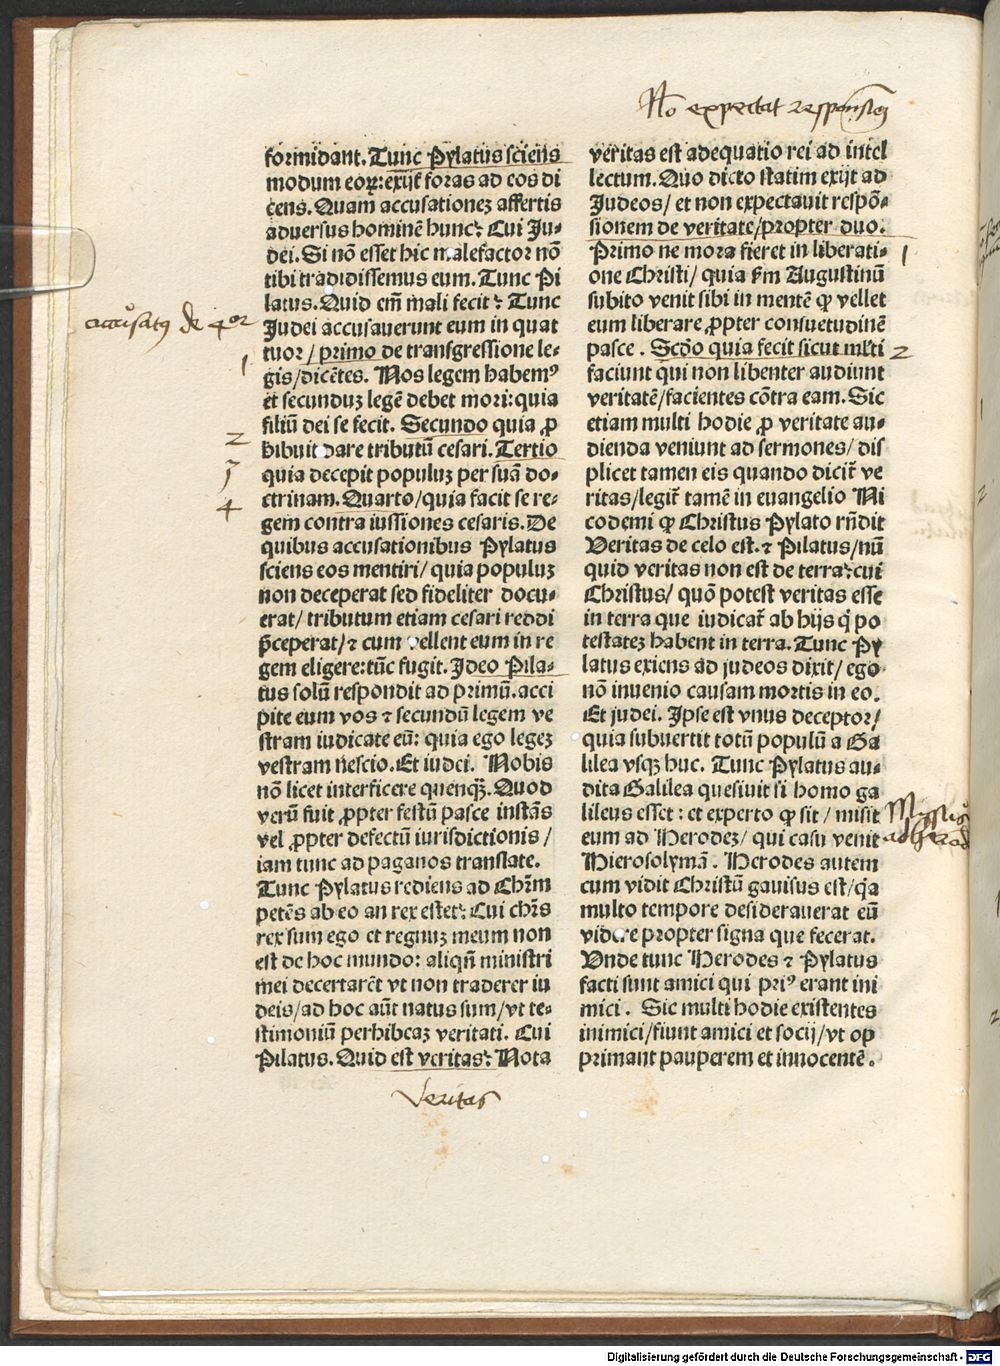 No expectat responsionem
formidant. Tunc Pylatus sciens
modum eoꝝ: exijt foras ad eos di
cens. Quam accusationeꝫ affertis
aduersus hominē hunc? Cui Ju⸗
dei. Si nō esset hic malefactor nō
tibi tradidissemus eum. Tunc Pi
latus. Quid em̄ mali fecit? Tunc
Judei accusauerunt eum in quat
tuor / primo de transgressione le⸗
gis/dicētes. Nos legem habemꝰ
et secunduꝫ legē debet mori: quia
filiū dei se fecit. Secundo quia ꝓ
hibuit dare tributū cesari. Tertio
quia decepit populuꝫ per suā do⸗
ctrinam. Quarto/quia facit se re⸗
gem contra iussiones cesaris. De
quibus accusationibus Pylatus
sciens eos mentiri/ quia populuꝫ
non deceperat sed fideliter docu⸗
erat/ tributum etiam cesari reddi
p̄ceperat/⁊ cum vellent eum in re
gem eligere: tūc fugit. Ideo Pila⸗
tus solū respondit ad primū. acci
pite eum vos ⁊ secundū legem ve
stram iudicate eū: quia ego legeꝫ
vestram nescio. Et iudei. Nobis
nō licet interficere quenqꝫ̄. Quod
verū fuit ꝓpter festū pasce instās
vel ꝓpter defectū iurisdictionis /
iam tunc ad paganos translate.
Tunc Pylatus rediens ad Chr̄m
petēs ab eo an rex esset? Cui chr̄s
rex sum ego et regnuꝫ meum non
est de hoc mundo: aliqn̄ ministri
mei decertarēt vt non traderer iu
deis/ad hoc aūt natus sum/vt te⸗
stimoniū perhibeaꝫ veritati. Cui
Pilatus. Quid est veritas? Nota
accusatꝰ de 4or
1
2
3
4
Veritas
veritas est adequatio rei ad intel
lectum. Quo dicto statim exijt ad
Judeos/ et non expectauit respō⸗
sionem de veritate/propter duo.
Primo ne mora fieret in liberati⸗
one Christi/ quia ẜm Augustinū
subito venit sibi in mentē ꝙ vellet
eum liberare ꝓpter consuetudinē
pasce . Scd̄o quia fecit sicut ml̄ti
faciunt qui non libenter audiunt
veritatē/facientes cōtra eam. Sic
etiam multi hodie ꝓ veritate au⸗
dienda veniunt ad sermones/ dis
plicet tamen eis quando dicit̄ ve
ritas/legit̄ tamē in euangelio Ni
codemi ꝙ Christus Pylato rn̄dit
Veritas de celo est. ⁊ Pilatus/nū
quid veritas non est de terra? cui
Christus/ quō potest veritas esse
in terra que iudicat̄ ab hijs q̇ po
testateꝫ habent in terra. Tunc Py
latus exiens ad judeos dixit/ ego
nō inuenio causam mortis in eo.
Et judei. Ipse est vnus deceptor/
quia subuertit totū populū a Ga
lilea vsqꝫ huc. Tunc Pylatus au⸗
dita Galilea quesiuit si homo ga
lileus esset : et experto ꝙ sit / misit
eum ad Herodeꝫ/ qui casu venit
Hierosolymā. Herodes autem
cum vidit Christū gauisus est/qꝛ
multo tempore desiderauerat eū
videre propter signa que fecerat.
Vnde tunc Herodes ⁊ Pylatus
facti sunt amici qui priꝰ erant ini
mici . Sic multi hodie existentes
inimici/fiunt amici et socij/vt op
primant pauperem et innocentē.
1
2
Missus
ad herod
Digitalisierung gefördert durch die Deutsche Forschungsgemeinschaft - DFG